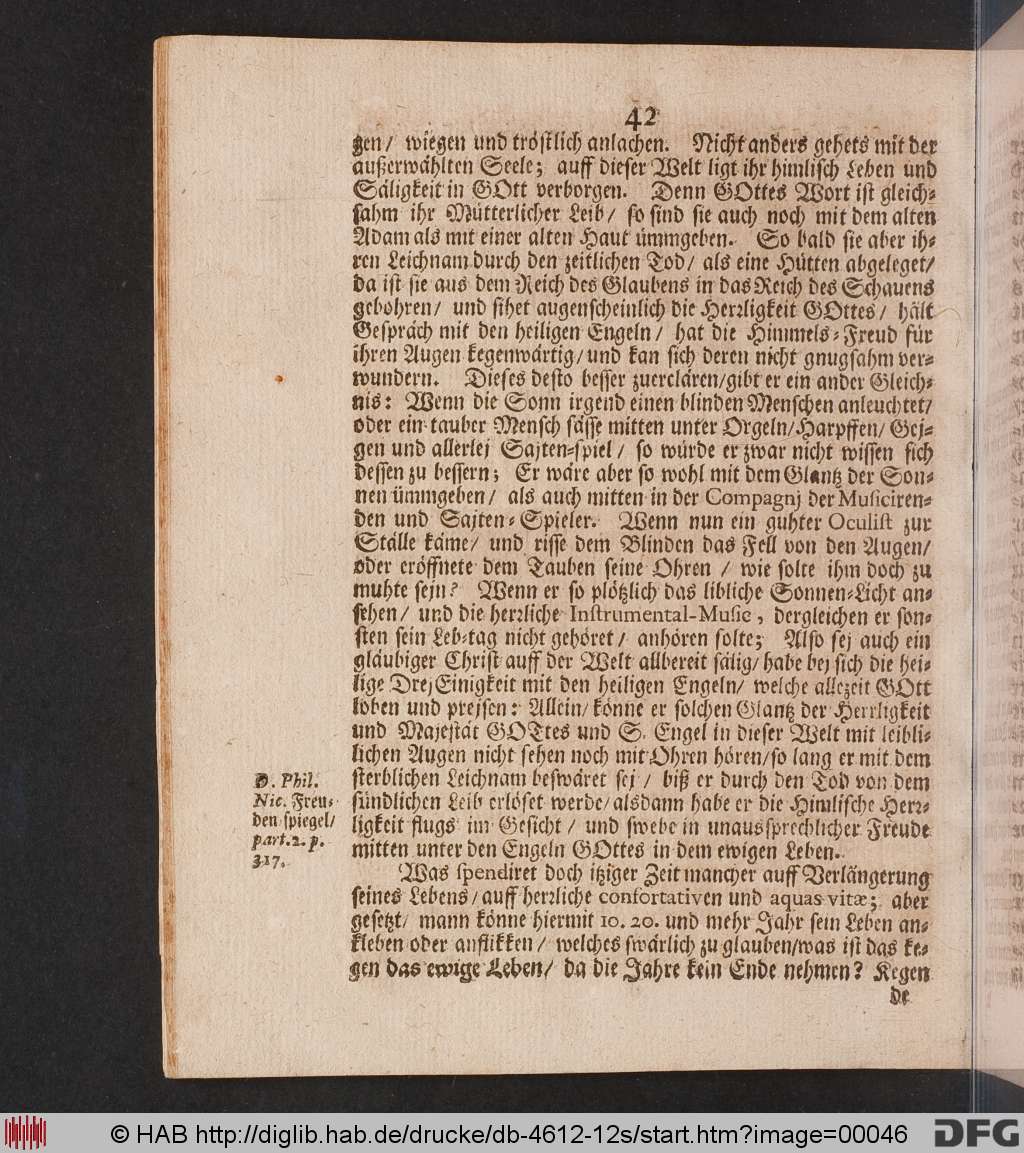 42
gen/ wiegen und tröstlich anlachen. Nicht anders gehets mit der
außerwählten Seele; auff dieser Welt ligt ihr himlisch Leben und
Säligkeit in GOtt verborgen. Denn GOttes Wort ist gleich-
sahm ihr Mütterlicher Leib/ so sind sie auch noch mit dem alten
Adam als mit einer alten Haut ümmgeben. So bald sie aber ih-
ren Leichnam durch den zeitlichen Tod/ als eine Hütten abgeleget/
da ist sie aus dem Reich des Glaubens in das Reich des Schauens
gebohren/ und sihet augenscheinlich die Herrligkeit GOttes/ hält
Gespräch mit den heiligen Engeln/ hat die Himmels-Freud für
ihren Augen kegenwärtig/ und kan sich deren nicht gnugsahm ver-
wundern. Dieses desto besser zuerclären/ gibt er ein ander Gleich-
nis: Wenn die Sonn irgend einen blinden Menschen anleuchtet/
oder ein tauber Mensch sässe mitten unter Orgeln/ Harpffen/ Gej-
gen und allerlej Sajten-spiel/ so würde er zwar nicht wissen sich
dessen zu bessern; Er wäre aber so wohl mit dem Glantz der Son-
nen ümmgeben/ als auch mitten in der Compagnj der Musiciren-
den und Sajten-Spieler. Wenn nun ein guhter Oculist zur
Ställe käme/ und risse dem Blinden das Fell von den Augen/
oder eröffnete dem Tauben seine Ohren/ wie solte ihm doch zu
muhte sejn? Wenn er so plötzlich das libliche Sonnen-Licht an-
sehen/ und die herrliche Instrumental-Music, dergleichen er son-
sten sein Leb-tag nicht gehöret/ anhören solte; Also sej auch ein
gläubiger Christ auff der Welt allbereit sälig/ habe bej sich die hei-
lige DrejEinigkeit mit den heiligen Engeln/ welche allezeit GOtt
loben und prejsen: Allein/ könne er solchen Glantz der Herrligkeit
und Majestät GOTtes und S. Engel in dieser Welt mit leibli-
lichen Augen nicht sehen noch mit Ohren hören/ so lang er mit dem
sterblichen Leichnam beswäret sej/ biß er durch den Tod von dem
sündlichen Leib erlöset werde/ alsdann habe er die Himlische Herr-
ligkeit flugs im Gesicht/ und swebe in unaussprechlicher Freude
mitten unter den Engeln GOttes in dem ewigen Leben.
D. Phil.
Nic. Freu-
den spiegel/
part. 2. p.
317.
Was spendiret doch itziger Zeit mancher auff Verlängerung
seines Lebens/ auff herrliche confortativen und aquas vitæ; aber
gesetzt/ mann könne hiermit 10. 20. und mehr Jahr sein Leben an-
kleben oder anflikken/ welches swärlich zu glauben/ was ist das ke-
gen das ewige Leben/ da die Jahre kein Ende nehmen? Kegen
de
© HAB http://diglib.hab.de/drucke/db-4612-12s/start.htm?image=00046
DFG